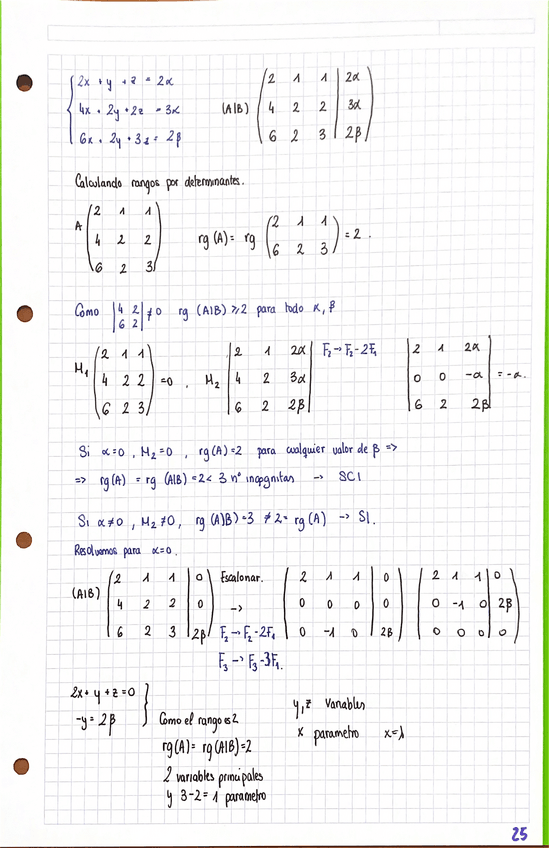 2x + y + z = 2α
4x + 2y + 2z = 3α
6x + 2y + 3z = 2β
(A|B) ( 2 1 1 | 2α
4 2 2 | 3α
6 2 3 | 2β )
Calculando rangos por determinantes.
A ( 2 1 1
4 2 2
6 2 3 )
rg(A) = rg ( 2 1 1
6 2 3 ) = 2 .
Como | 4 2
6 2 | ≠ 0 rg (A|B) ≥ 2 para todo α, β
M₁ ( 2 1 1
4 2 2
6 2 3 ) = 0 ,
M₂ | 2 1 2α
4 2 3α
6 2 2β |
F₂ → F₂ - 2F₁
| 2 1 2α
0 0 -α
6 2 2β | = -α.
Si α = 0 , M₂ = 0 , rg(A) = 2 para cualquier valor de β =>
=> rg(A) = rg (A|B) = 2 < 3 nº incognitas → SCI
Si α ≠ 0 , M₂ ≠ 0, rg (A|B) = 3 ≠ 2 = rg(A) → SI.
Resolvemos para α = 0 .
(A|B) ( 2 1 1 | 0
4 2 2 | 0
6 2 3 | 2β )
Escalonar.
→
F₂ → F₂ - 2F₁
F₃ → F₃ - 3F₁.
( 2 1 1 | 0
0 0 0 | 0
0 -1 0 | 2β )
( 2 1 1 | 0
0 -1 0 | 2β
0 0 0 | 0 )
2x + y + z = 0
-y = 2β
Como el rango es 2
rg(A) = rg(A|B) = 2
2 variables principales
y 3-2 = 1 parametro
y, z variables
x parametro x = λ
25